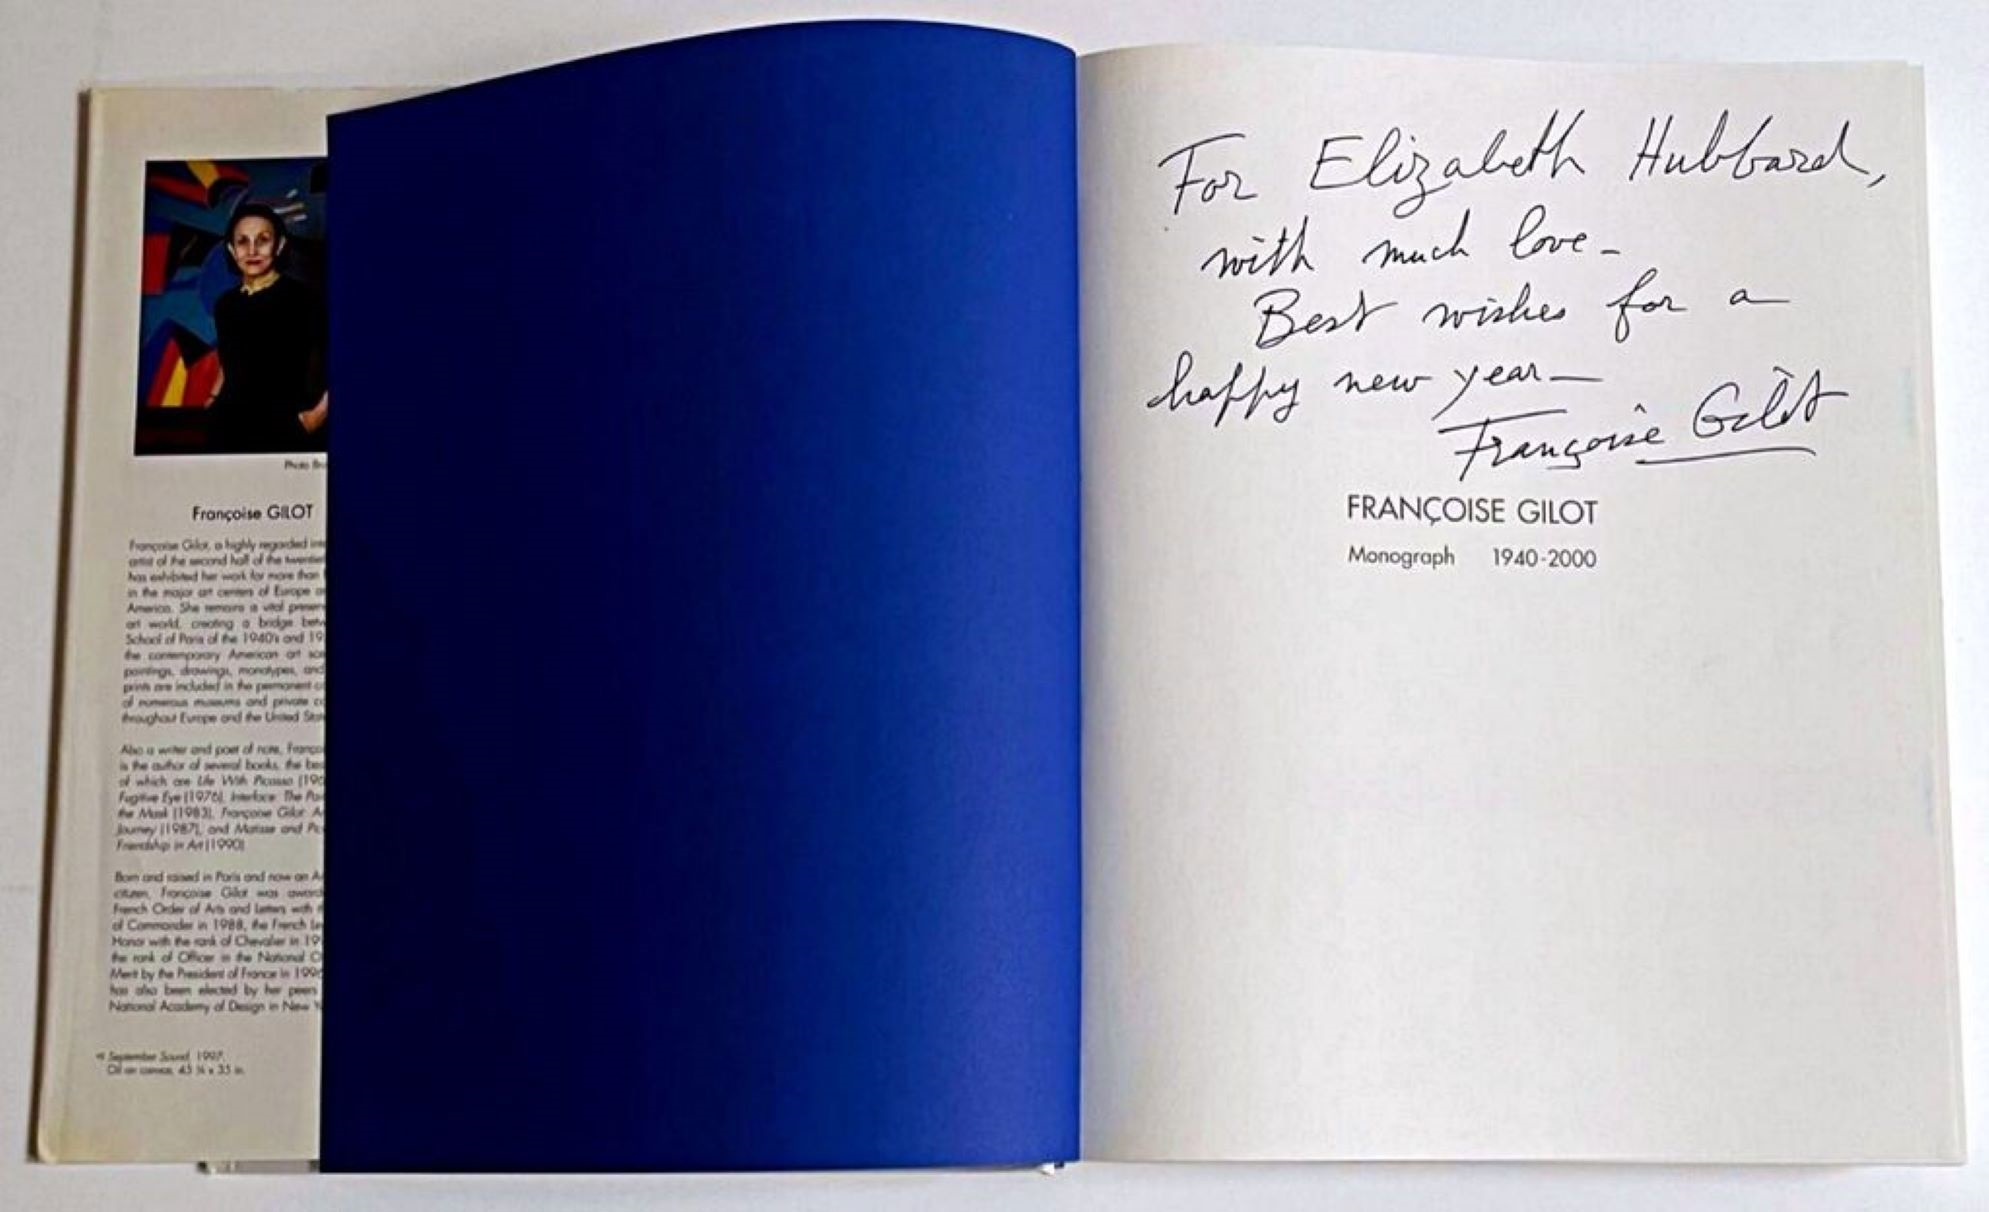 Photo Bru
Françoise GILOT
Françoise Gilot, a highly regarded inte
artist of the second half of the twentiet
has exhibited her work for more than
in the major art centers of Europe an
America. She remains a vital presen
art world, creating a bridge betw
School of Paris of the 1940's and 19
the contemporary American art sce
paintings, drawings, monotypes, and
prints are included in the permanent co
of numerous museums and private co
throughout Europe and the United Stat
Also a writer and poet of note, Françoi
is the author of several books, the bes
of which are Life With Picasso (196
Fugitive Eye (1976), Interface: The Pai
the Mask (1983), Françoise Gilot: An
Journey (1987), and Matisse and Pic
Friendship in Art (1990)
Born and raised in Paris and now an A
citizen, Françoise Gilot was award
French Order of Arts and Letters with t
of Commander in 1988, the French Le
Honor with the rank of Chevalier in 19
the rank of Officer in the National O
Merit by the President of France in 1996
has also been elected by her peers
National Academy of Design in New Y
September Sound, 1997,
Oil on canvas, 45 ¾ x 35 in.
For Elizabeth Hubbard,
with much love -
Best wishes for a
happy new year —
Françoise Gilot
FRANÇOISE GILOT
Monograph 1940-2000